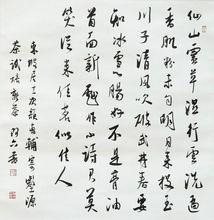 仙山靈草濕行雲洗遍
香肌粉未勻明月来投玉
川子清風吹破武林春要
知冰雪心腸好不是膏油
首面新戲作小詩君莫
笑從来佳茗似佳人
東坡居士次韻曹輔寄壑源
試焙新芽